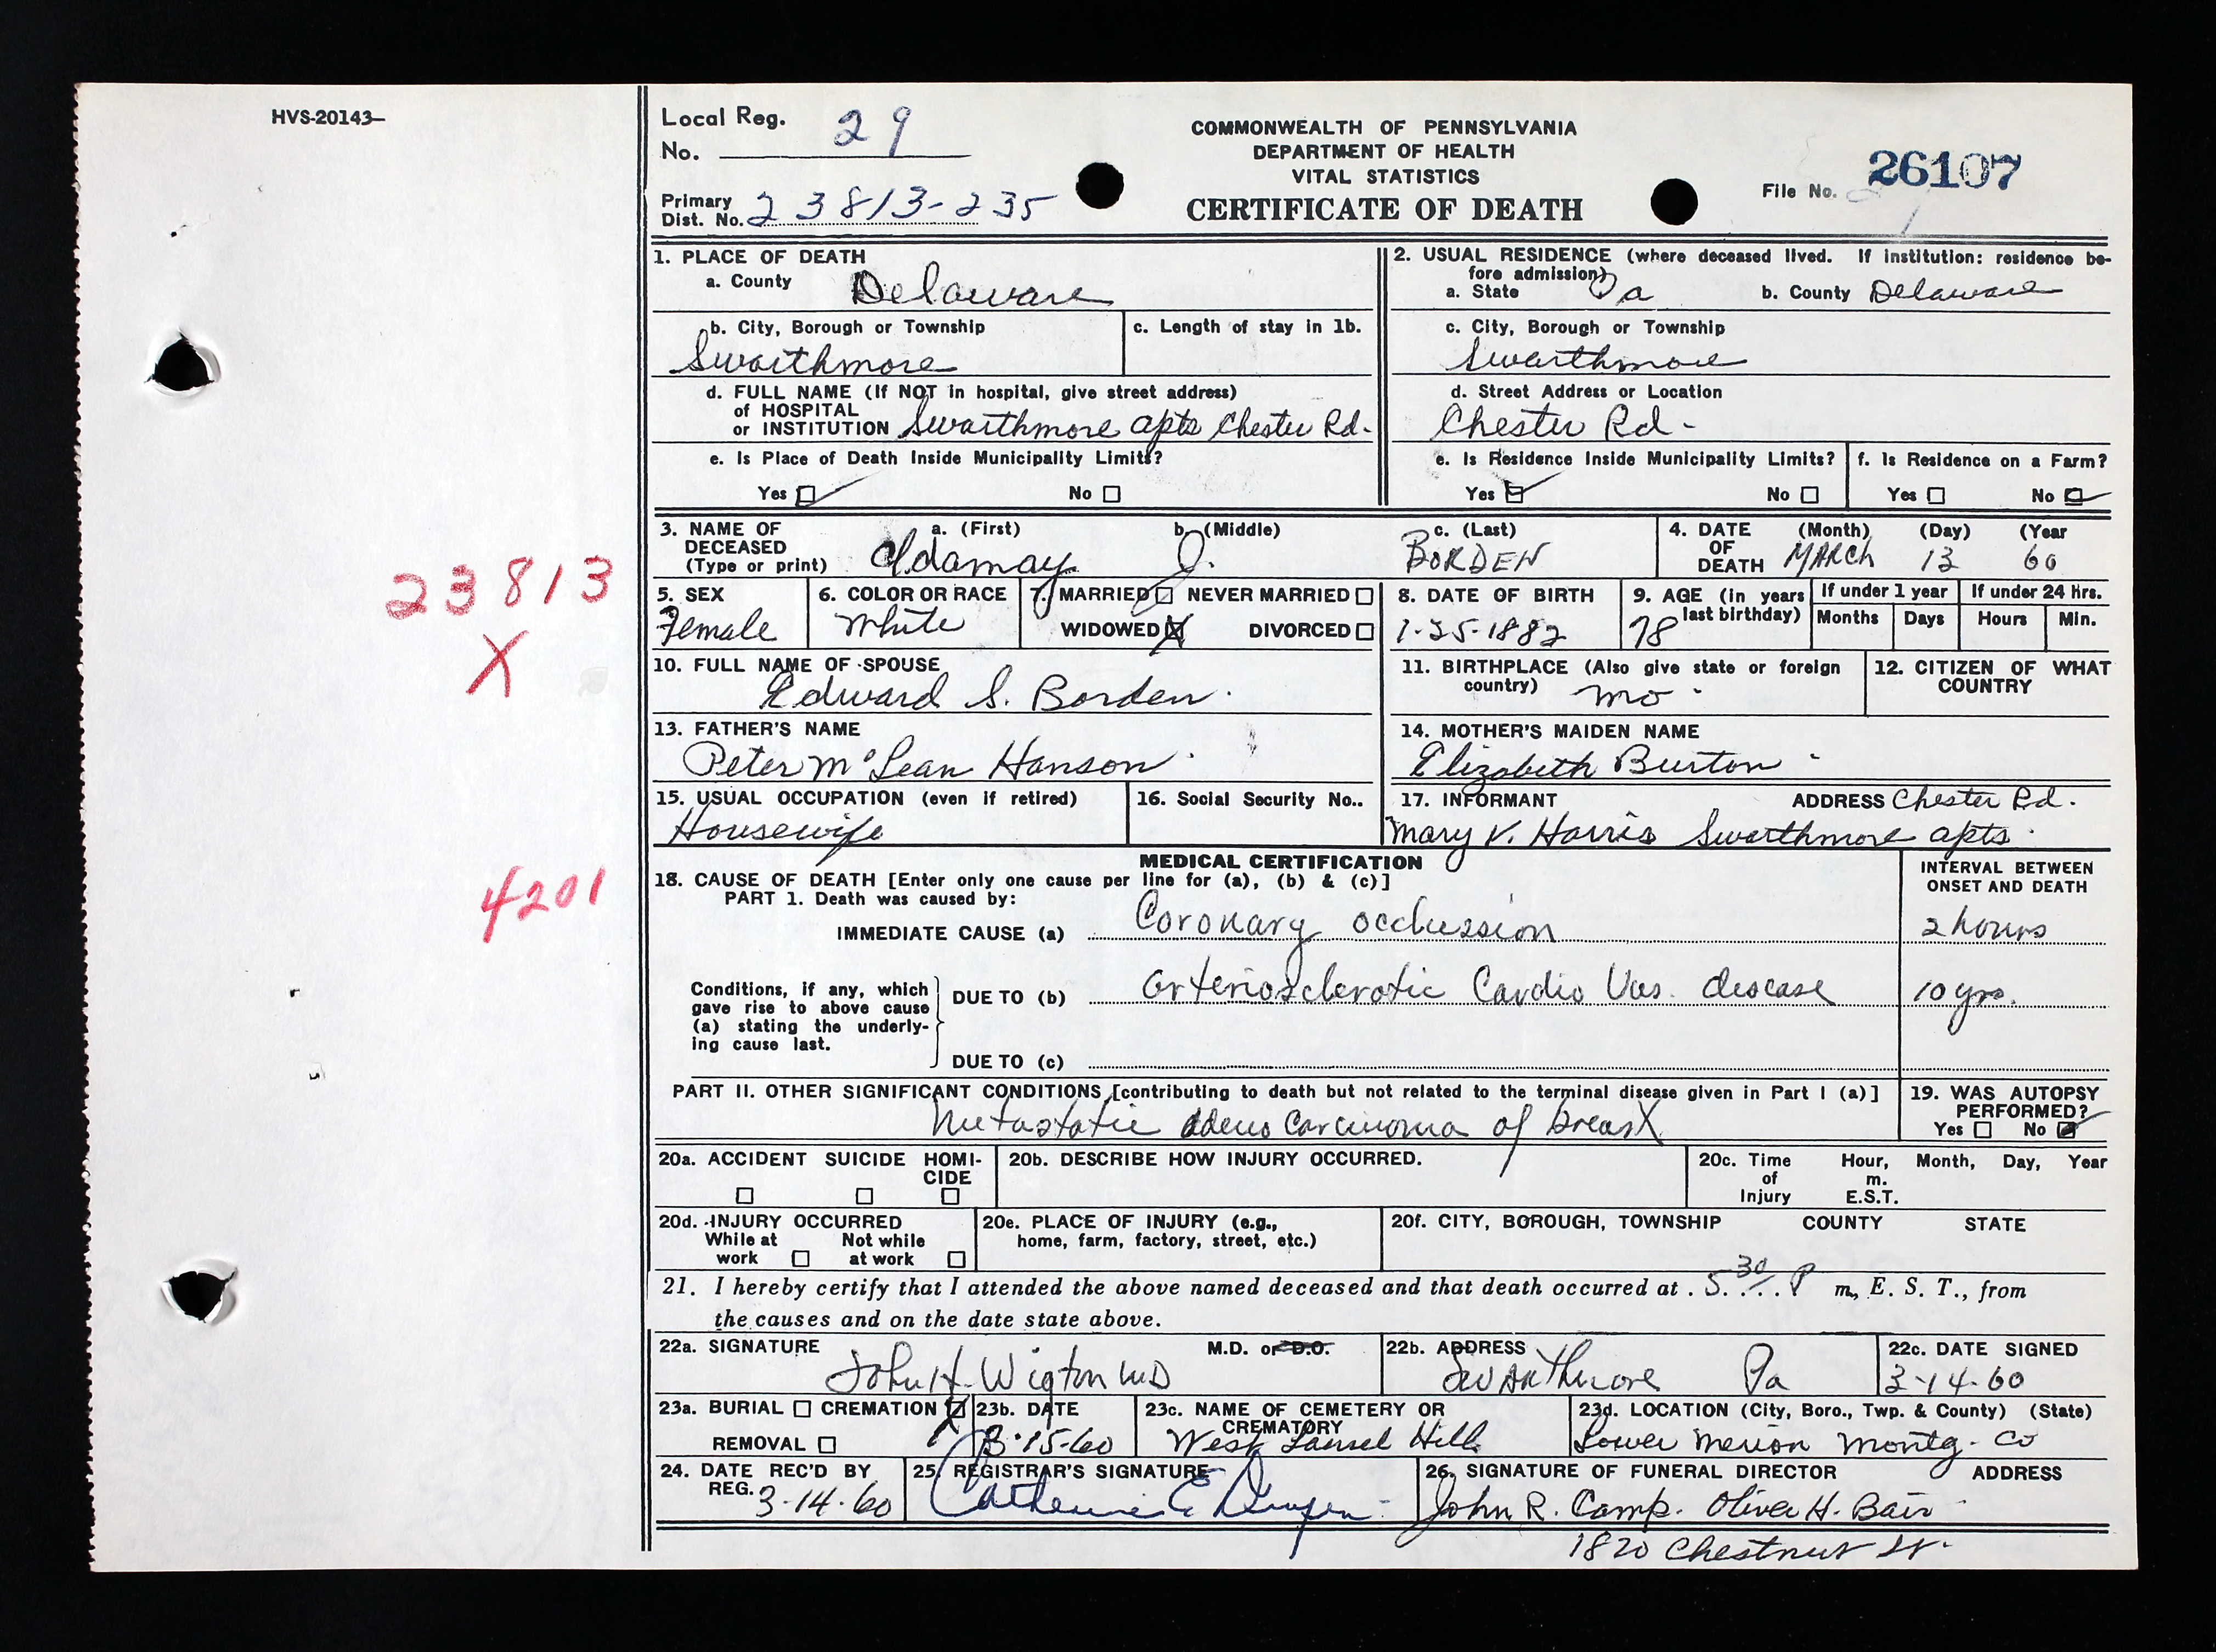 HVS-20143-
Local Reg. No. 29
COMMONWEALTH OF PENNSYLVANIA
DEPARTMENT OF HEALTH
VITAL STATISTICS
CERTIFICATE OF DEATH
File No. 26107
Primary Dist. No. 23813-235
1. PLACE OF DEATH
a. County Delaware
2. USUAL RESIDENCE (where deceased lived. If institution: residence be-
fore admission)
a. State Pa b. County Delaware
b. City, Borough or Township
Swarthmore
c. Length of stay in 1b.
c. City, Borough or Township
Swarthmore
d. FULL NAME (If NOT in hospital, give street address)
of HOSPITAL
or INSTITUTION Swarthmore apts Chester Rd.
d. Street Address or Location
Chester Rd -
e. Is Place of Death Inside Municipality Limits?
Yes No
e. Is Residence Inside Municipality Limits?
Yes No
f. Is Residence on a Farm?
Yes No
3. NAME OF DECEASED (Type or print)
a. (First) b. (Middle) c. (Last)
Idamay J. BORDEN
4. DATE OF DEATH (Month) (Day) (Year
MARCH 13 60
23813
X
5. SEX
Female
6. COLOR OR RACE
White
7. MARRIED NEVER MARRIED
WIDOWED X DIVORCED
8. DATE OF BIRTH
1-25-1882
9. AGE (in years last birthday)
78
If under 1 year
Months Days
If under 24 hrs.
Hours Min.
10. FULL NAME OF SPOUSE
Edward S. Borden.
11. BIRTHPLACE (Also give state or foreign country)
Mo.
12. CITIZEN OF WHAT COUNTRY
13. FATHER'S NAME
Peter McLean Hanson
14. MOTHER'S MAIDEN NAME
Elizabeth Burton
15. USUAL OCCUPATION (even if retired)
Housewife
16. Social Security No..
17. INFORMANT ADDRESS Chester Rd.
Mary V. Harris Swarthmore apts.
4201
MEDICAL CERTIFICATION
18. CAUSE OF DEATH [Enter only one cause per line for (a), (b) & (c)]
PART 1. Death was caused by:
INTERVAL BETWEEN ONSET AND DEATH
IMMEDIATE CAUSE (a) Coronary occlussion 2 hours
Conditions, if any, which
gave rise to above cause
(a) stating the underly-
ing cause last.
DUE TO (b) Arteriosclerotic Cardio Vas. disease 10 yrs.
DUE TO (c)
PART II. OTHER SIGNIFICANT CONDITIONS [contributing to death but not related to the terminal disease given in Part I (a)]
Metastatic adeno carcinoma of breast
19. WAS AUTOPSY PERFORMED?
Yes No
20a. ACCIDENT SUICIDE HOMI-
CIDE
20b. DESCRIBE HOW INJURY OCCURRED.
20c. Time of Injury Hour, Month, Day, Year
m.
E.S.T.
20d. INJURY OCCURRED
While at work Not while at work
20e. PLACE OF INJURY (e.g.,
home, farm, factory, street, etc.)
20f. CITY, BOROUGH, TOWNSHIP COUNTY STATE
21. I hereby certify that I attended the above named deceased and that death occurred at . 5.30 P m., E. S. T., from
the causes and on the date state above.
22a. SIGNATURE M.D. or D.O.
John H. Wigton MD
22b. ADDRESS
Swarthmore Pa
22c. DATE SIGNED
3-14-60
23a. BURIAL CREMATION X
REMOVAL
23b. DATE
3-15-60
23c. NAME OF CEMETERY OR CREMATORY
West Laurel Hill
23d. LOCATION (City, Boro., Twp. & County) (State)
Lower Merion Montg. Co
24. DATE REC'D BY REG.
3-14-60
25. REGISTRAR'S SIGNATURE
Catherine E
26. SIGNATURE OF FUNERAL DIRECTOR ADDRESS
John R. Camp. Oliver H. Bair
1820 Chestnut St.